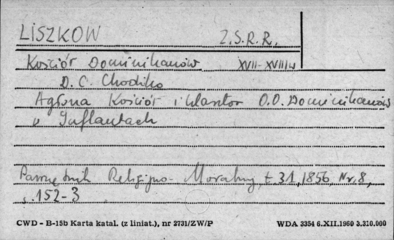 LISZKÓW Z.S.R.R.
Kościór Dominikanów XVII-XVIII w
D. C. Chodźko
Agłona Kościór i klasztor O.O. Dominikanów
w Inflantach
Pamiętnik Religijno-Moralny, t. 31, 1856, Nr. 8,
s. 152-3
CWD - B-15b Karta katal. (z liniat.), nr 2731/ZW/P WDA 3354 6.XII.1960 3.310.000